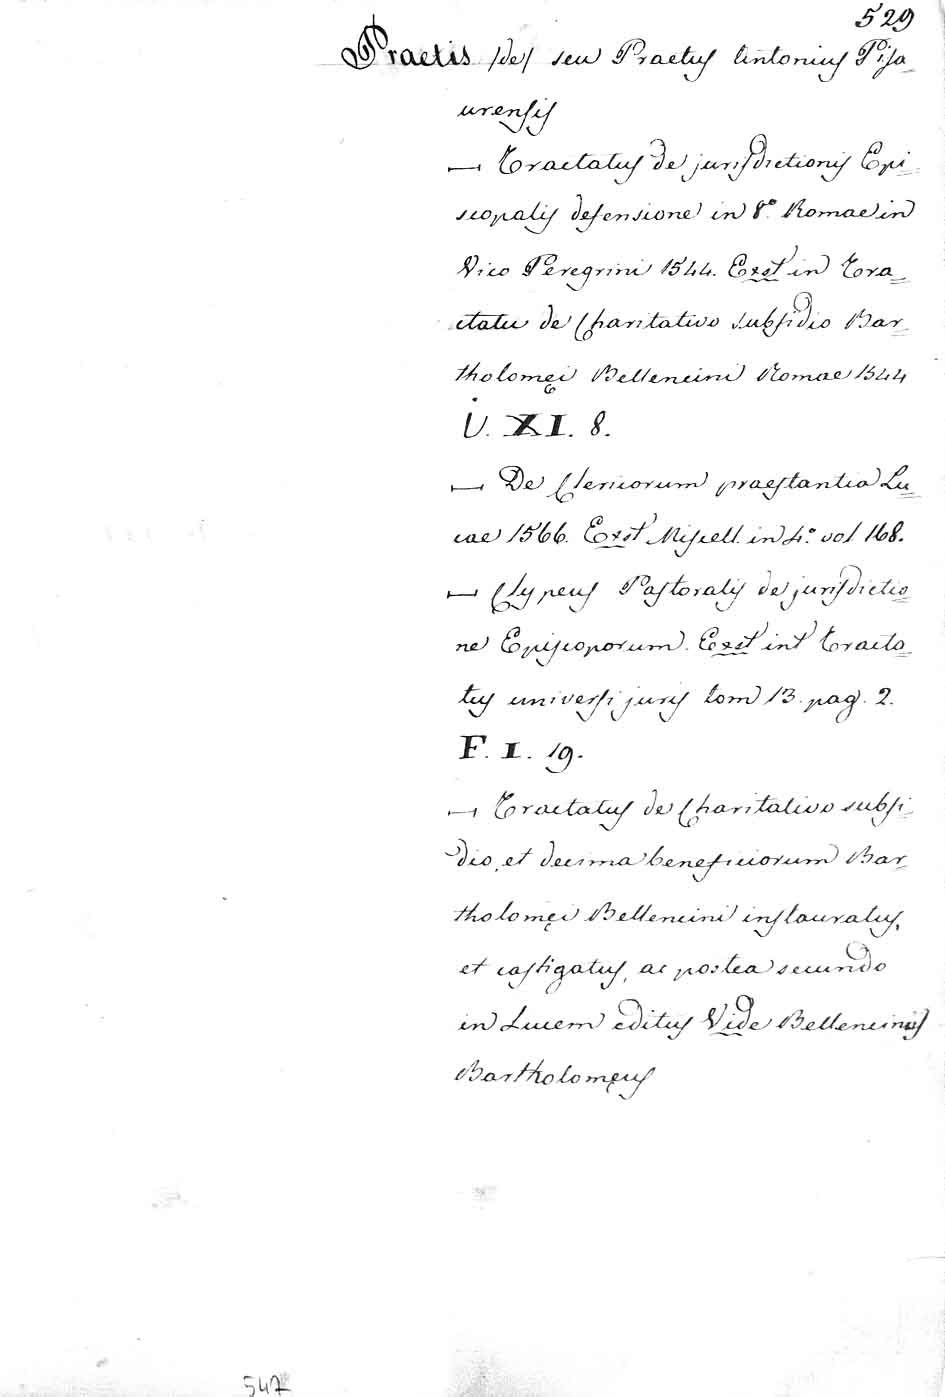 529
Praetis /de/ seu Praetus Antonius Pisa_
urensis
— Tractatus de jurisdictionis Epi_
scopalis defensione in 8.° Romae in
Vico Peregrini 1544. Exst in Tra_
ctatu de Charitativo subsidio Bar_
tholomęi Bellencini Romae 1544
U. XI. 8.
— De Clericorum praestantia Lu_
cae 1566. Exst Miscell. in 4.° vol 168.
— Clypeus Pastoralis de jurisdictio_
ne Episcoporum. Exst int Tracta_
tus universi juris tom 13. pag. 2.
F. I. 19.
— Tractatus de Charitativo subsi_
dio, et decima beneficiorum Bar_
tholomęi Bellencini instauratus,
et castigatus, ac postea secundo
in Lucem editus Vide Bellencinus
Bartholomęus
547